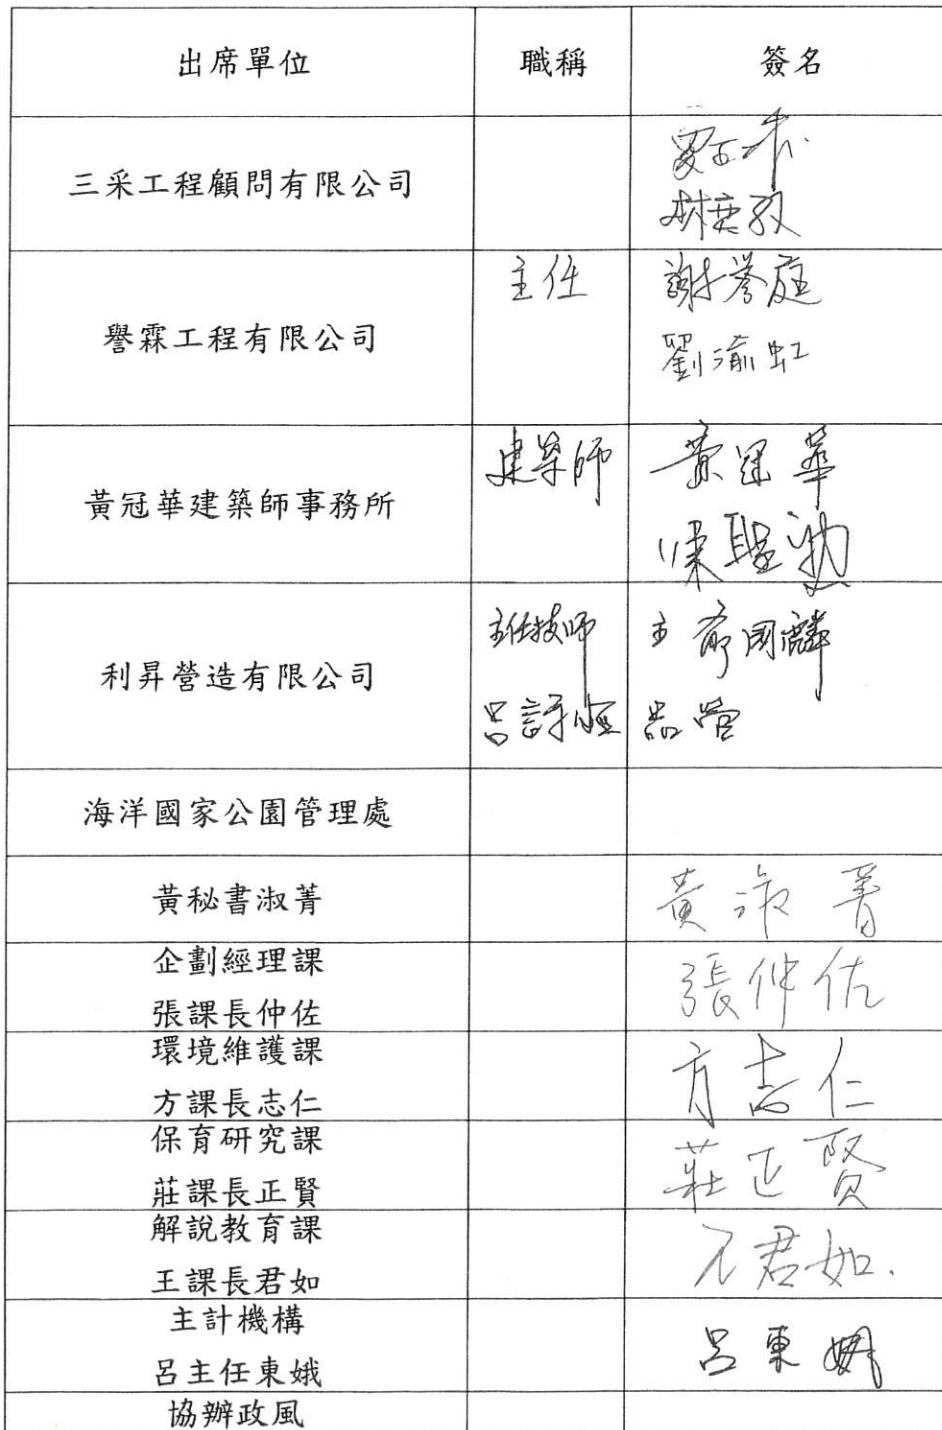 出席單位 職稱 簽名
三采工程顧問有限公司
譽霖工程有限公司 主任 謝誉庭
劉渝虹
黃冠華建築師事務所 建築師 黃冠華
利昇營造有限公司 主任技師
品管
海洋國家公園管理處
黃秘書淑菁 黃淑菁
企劃經理課
張課長仲佐 張仲佐
環境維護課
方課長志仁 方志仁
保育研究課
莊課長正賢 莊正賢
解說教育課
王課長君如 王君如.
主計機構
呂主任東娥 呂東娥
協辦政風